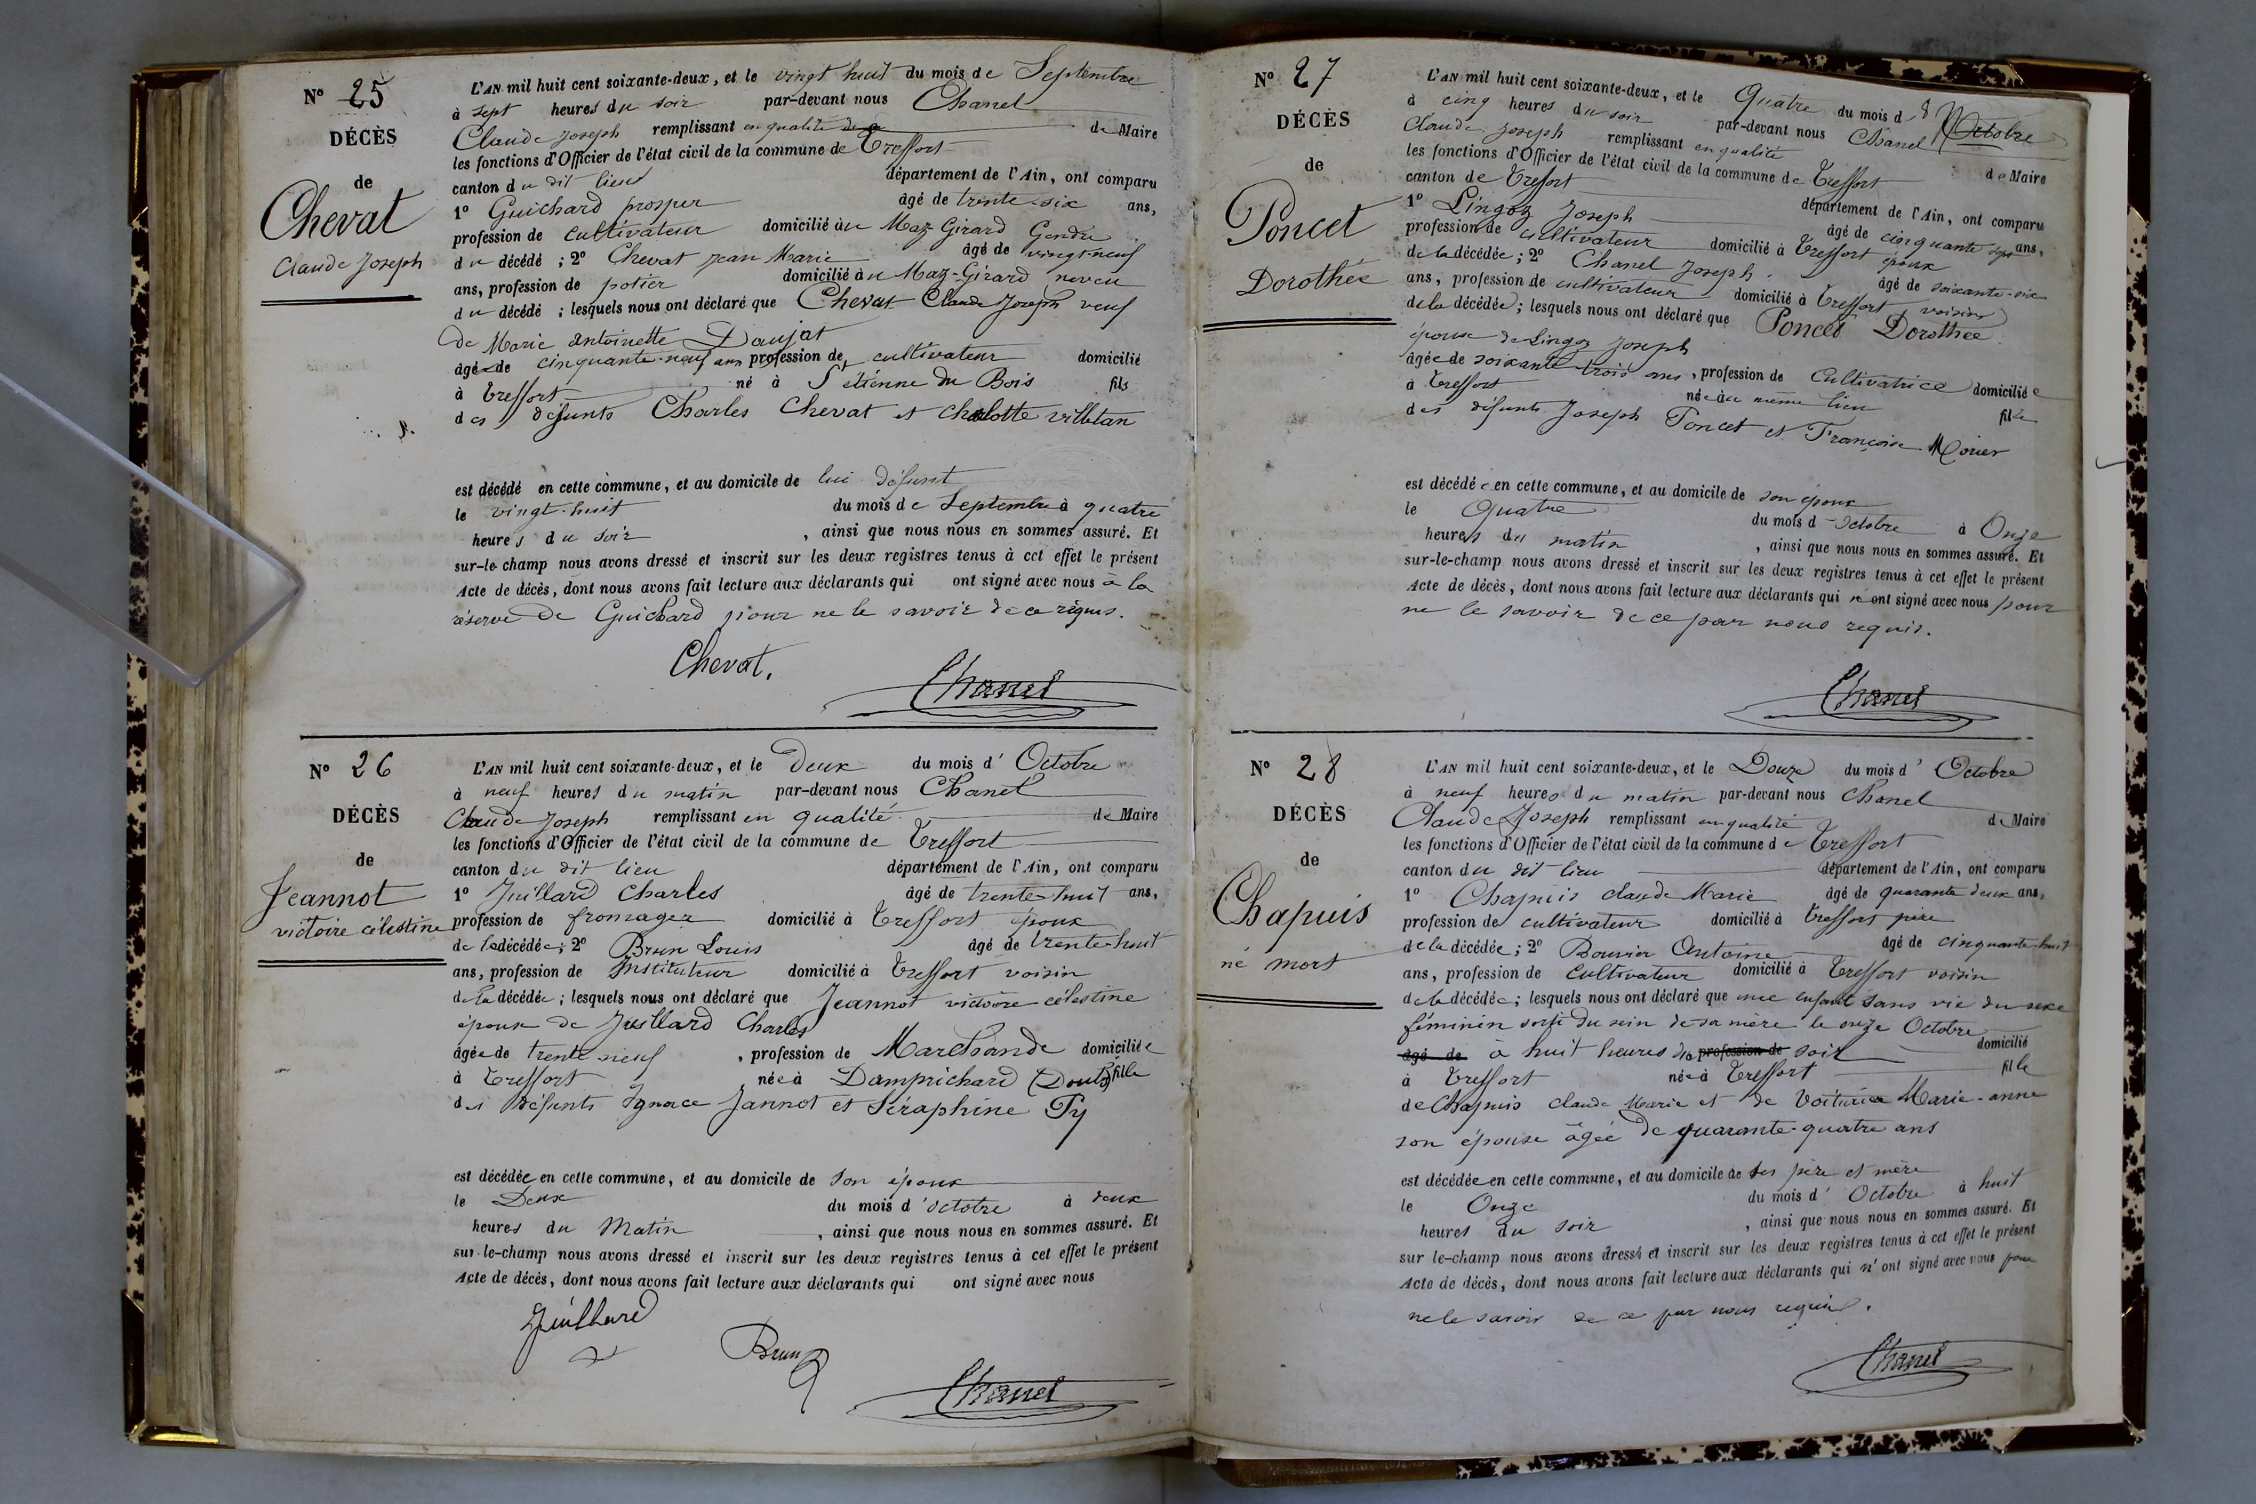 N° 25
DÉCÈS
de
Chevat
Claude Joseph
L'AN mil huit cent soixante-deux, et le vingt huit du mois de Septembre
à sept heures du soir par-devant nous Chanel
Claude Joseph remplissant en qualité de Maire
les fonctions d'Officier de l'état civil de la commune de Treffort
canton du dit lieu département de l'Ain, ont comparu
1° Guichard prosper âgé de trente-six ans,
profession de cultivateur domicilié au Maz-Girard Gendre
du décédé ; 2° Chevat jean Marie âgé de vingt-neuf
ans, profession de potier domicilié au Maz-Girard neveu
du décédé ; lesquels nous ont déclaré que Chevat Claude Joseph veuf
de Marie antoinette Daujat
âgé de cinquante-neuf ans profession de cultivateur domicilié
à Treffort né à St étienne du Bois fils
des défunts Charles Chevat et charlotte villetan
est décédé en cette commune, et au domicile de lui défunt
le vingt-huit du mois de Septembre à quatre
heures du soir , ainsi que nous nous en sommes assuré. Et
sur-le-champ nous avons dressé et inscrit sur les deux registres tenus à cet effet le présent
Acte de décès, dont nous avons fait lecture aux déclarants qui ont signé avec nous à la
réserve de Guichard pour ne le savoir de ce requis.
Chevat.
Chanel
N° 26
DÉCÈS
de
Jeannot
victoire célestine
L'AN mil huit cent soixante-deux, et le Deux du mois d' Octobre
à neuf heures du matin par-devant nous Chanel
Claude Joseph remplissant en qualité de Maire
les fonctions d'Officier de l'état civil de la commune de Treffort
canton du dit lieu département de l'Ain, ont comparu
1° Juillard Charles âgé de trente-huit ans,
profession de fromager domicilié à Treffort époux
de la décédée ; 2° Brun Louis âgé de trente-huit
ans, profession de Instituteur domicilié à Treffort voisin
de la décédée ; lesquels nous ont déclaré que Jeannot victoire célestine
épouse de Juillard Charles
âgée de trente neuf , profession de Marchande domiciliée
à Treffort née à Damprichard (Doubs) fille
des défunts Ignace Jannot et Séraphine Py
est décédée en cette commune, et au domicile de son époux
le Deux du mois d'octobre à deux
heures du Matin , ainsi que nous nous en sommes assuré. Et
sur-le-champ nous avons dressé et inscrit sur les deux registres tenus à cet effet le présent
Acte de décès, dont nous avons fait lecture aux déclarants qui ont signé avec nous
Juillard
Brun
Chanel
N° 27
DÉCÈS
de
Poncet
Dorothée
L'AN mil huit cent soixante-deux, et le Quatre du mois d' Octobre
à cinq heures du soir par-devant nous Chanel
Claude Joseph remplissant en qualité de Maire
les fonctions d'Officier de l'état civil de la commune de Treffort
canton de Treffort département de l'Ain, ont comparu
1° Lingoz Joseph âgé de cinquante sept ans,
profession de cultivateur domicilié à Treffort époux
de la décédée ; 2° Chanel Joseph. âgé de soixante-six
ans, profession de cultivateur domicilié à Treffort voisin
de la décédée ; lesquels nous ont déclaré que Poncet Dorothée
épouse de Lingoz Joseph
âgée de soixante trois ans , profession de Cultivatrice domiciliée
à Treffort née au même lieu fille
des défunts Joseph Poncet et Françoise Morier
est décédée en cette commune, et au domicile de son époux
le Quatre du mois d'octobre à Onze
heures du matin , ainsi que nous nous en sommes assuré. Et
sur-le-champ nous avons dressé et inscrit sur les deux registres tenus à cet effet le présent
Acte de décès, dont nous avons fait lecture aux déclarants qui n'ont signé avec nous pour
ne le savoir de ce par nous requis.
Chanel
N° 28
DÉCÈS
de
Chapuis
né mort
L'AN mil huit cent soixante-deux, et le Douze du mois d' Octobre
à neuf heures du matin par-devant nous Chanel
Claude Joseph remplissant en qualité de Maire
les fonctions d'Officier de l'état civil de la commune de Treffort
canton du dit lieu département de l'Ain, ont comparu
1° Chapuis claude Marie âgé de quarante deux ans,
profession de cultivateur domicilié à Treffort père
de la décédée ; 2° Bouvier Antoine âgé de cinquante-huit
ans, profession de Cultivateur domicilié à Treffort voisin
de la décédée ; lesquels nous ont déclaré que une enfant sans vie du sexe
féminin sorti du sein de sa mère le onze Octobre
âgé de à huit heures du profession de soir domicilié
à Treffort née à Treffort fille
de Chapuis claude Marie et de Voiturier Marie-anne
son épouse âgée de quarante-quatre ans
est décédée en cette commune, et au domicile de ses père et mère
le Onze du mois d' Octobre à huit
heures du soir , ainsi que nous nous en sommes assuré. Et
sur le-champ nous avons dressé et inscrit sur les deux registres tenus à cet effet le présent
Acte de décès, dont nous avons fait lecture aux déclarants qui n'ont signé avec nous pour
ne le savoir de ce par nous requis.
Chanel